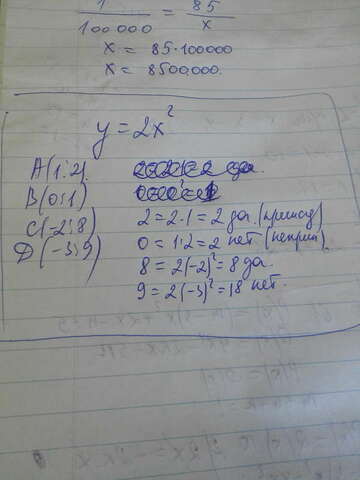 1/100000 = 85/x
x = 85·100000
x = 8500000.
y = 2x²
A(1;2).
B(0;1)
C(-2;8) 2 = 2·1 = 2 да. (принад)
D(-3;9) 0 = 1·2 = 2 нет
8 = 2(-2)² = 8 да.
9 = 2(-3)² = 18 нет.